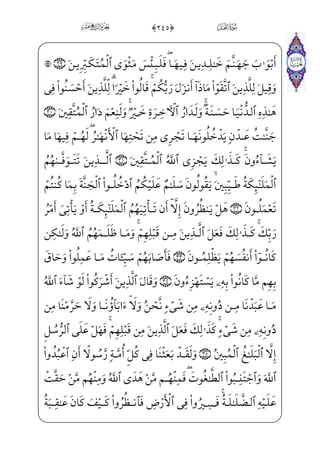 سورة النحل ﴿٢٤٥﴾ الجزء الرابع عشر
أَبْوَٰبَ جَهَنَّمَ خَٰلِدِينَ فِيهَا ۖ فَلَبِئْسَ مَثْوَى ٱلْمُتَكَبِّرِينَ ۝٢٩ ۞
وَقِيلَ لِلَّذِينَ ٱتَّقَوْا۟ مَاذَآ أَنزَلَ رَبُّكُمْ ۚ قَالُوا۟ خَيْرًا ۗ لِّلَّذِينَ أَحْسَنُوا۟ فِى
هَٰذِهِ ٱلدُّنْيَا حَسَنَةٌ ۚ وَلَدَارُ ٱلْءَاخِرَةِ خَيْرٌ ۚ وَلَنِعْمَ دَارُ ٱلْمُتَّقِينَ ۝٣٠
جَنَّٰتُ عَدْنٍ يَدْخُلُونَهَا تَجْرِى مِن تَحْتِهَا ٱلْأَنْهَٰرُ ۖ لَهُمْ فِيهَا مَا
يَشَآءُونَ ۚ كَذَٰلِكَ يَجْزِى ٱللَّهُ ٱلْمُتَّقِينَ ۝٣١ ٱلَّذِينَ تَتَوَفَّىٰهُمُ
ٱلْمَلَٰٓئِكَةُ طَيِّبِينَ ۙ يَقُولُونَ سَلَٰمٌ عَلَيْكُمُ ٱدْخُلُوا۟ ٱلْجَنَّةَ بِمَا كُنتُمْ
تَعْمَلُونَ ۝٣٢ هَلْ يَنظُرُونَ إِلَّآ أَن تَأْتِيَهُمُ ٱلْمَلَٰٓئِكَةُ أَوْ يَأْتِىَ أَمْرُ
رَبِّكَ ۚ كَذَٰلِكَ فَعَلَ ٱلَّذِينَ مِن قَبْلِهِمْ ۚ وَمَا ظَلَمَهُمُ ٱللَّهُ وَلَٰكِن
كَانُوٓا۟ أَنفُسَهُمْ يَظْلِمُونَ ۝٣٣ فَأَصَابَهُمْ سَيِّـَٔاتُ مَا عَمِلُوا۟ وَحَاقَ
بِهِم مَّا كَانُوا۟ بِهِۦ يَسْتَهْزِءُونَ ۝٣٤ وَقَالَ ٱلَّذِينَ أَشْرَكُوا۟ لَوْ شَآءَ ٱللَّهُ
مَا عَبَدْنَا مِن دُونِهِۦ مِن شَىْءٍ نَّحْنُ وَلَآ ءَابَآؤُنَا وَلَا حَرَّمْنَا مِن
دُونِهِۦ مِن شَىْءٍ ۚ كَذَٰلِكَ فَعَلَ ٱلَّذِينَ مِن قَبْلِهِمْ ۚ فَهَلْ عَلَى ٱلرُّسُلِ
إِلَّا ٱلْبَلَٰغُ ٱلْمُبِينُ ۝٣٥ وَلَقَدْ بَعَثْنَا فِى كُلِّ أُمَّةٍ رَّسُولًا أَنِ ٱعْبُدُوا۟
ٱللَّهَ وَٱجْتَنِبُوا۟ ٱلطَّٰغُوتَ ۖ فَمِنْهُم مَّنْ هَدَى ٱللَّهُ وَمِنْهُم مَّنْ حَقَّتْ
عَلَيْهِ ٱلضَّلَٰلَةُ ۚ فَسِيرُوا۟ فِى ٱلْأَرْضِ فَٱنظُرُوا۟ كَيْفَ كَانَ عَٰقِبَةُ